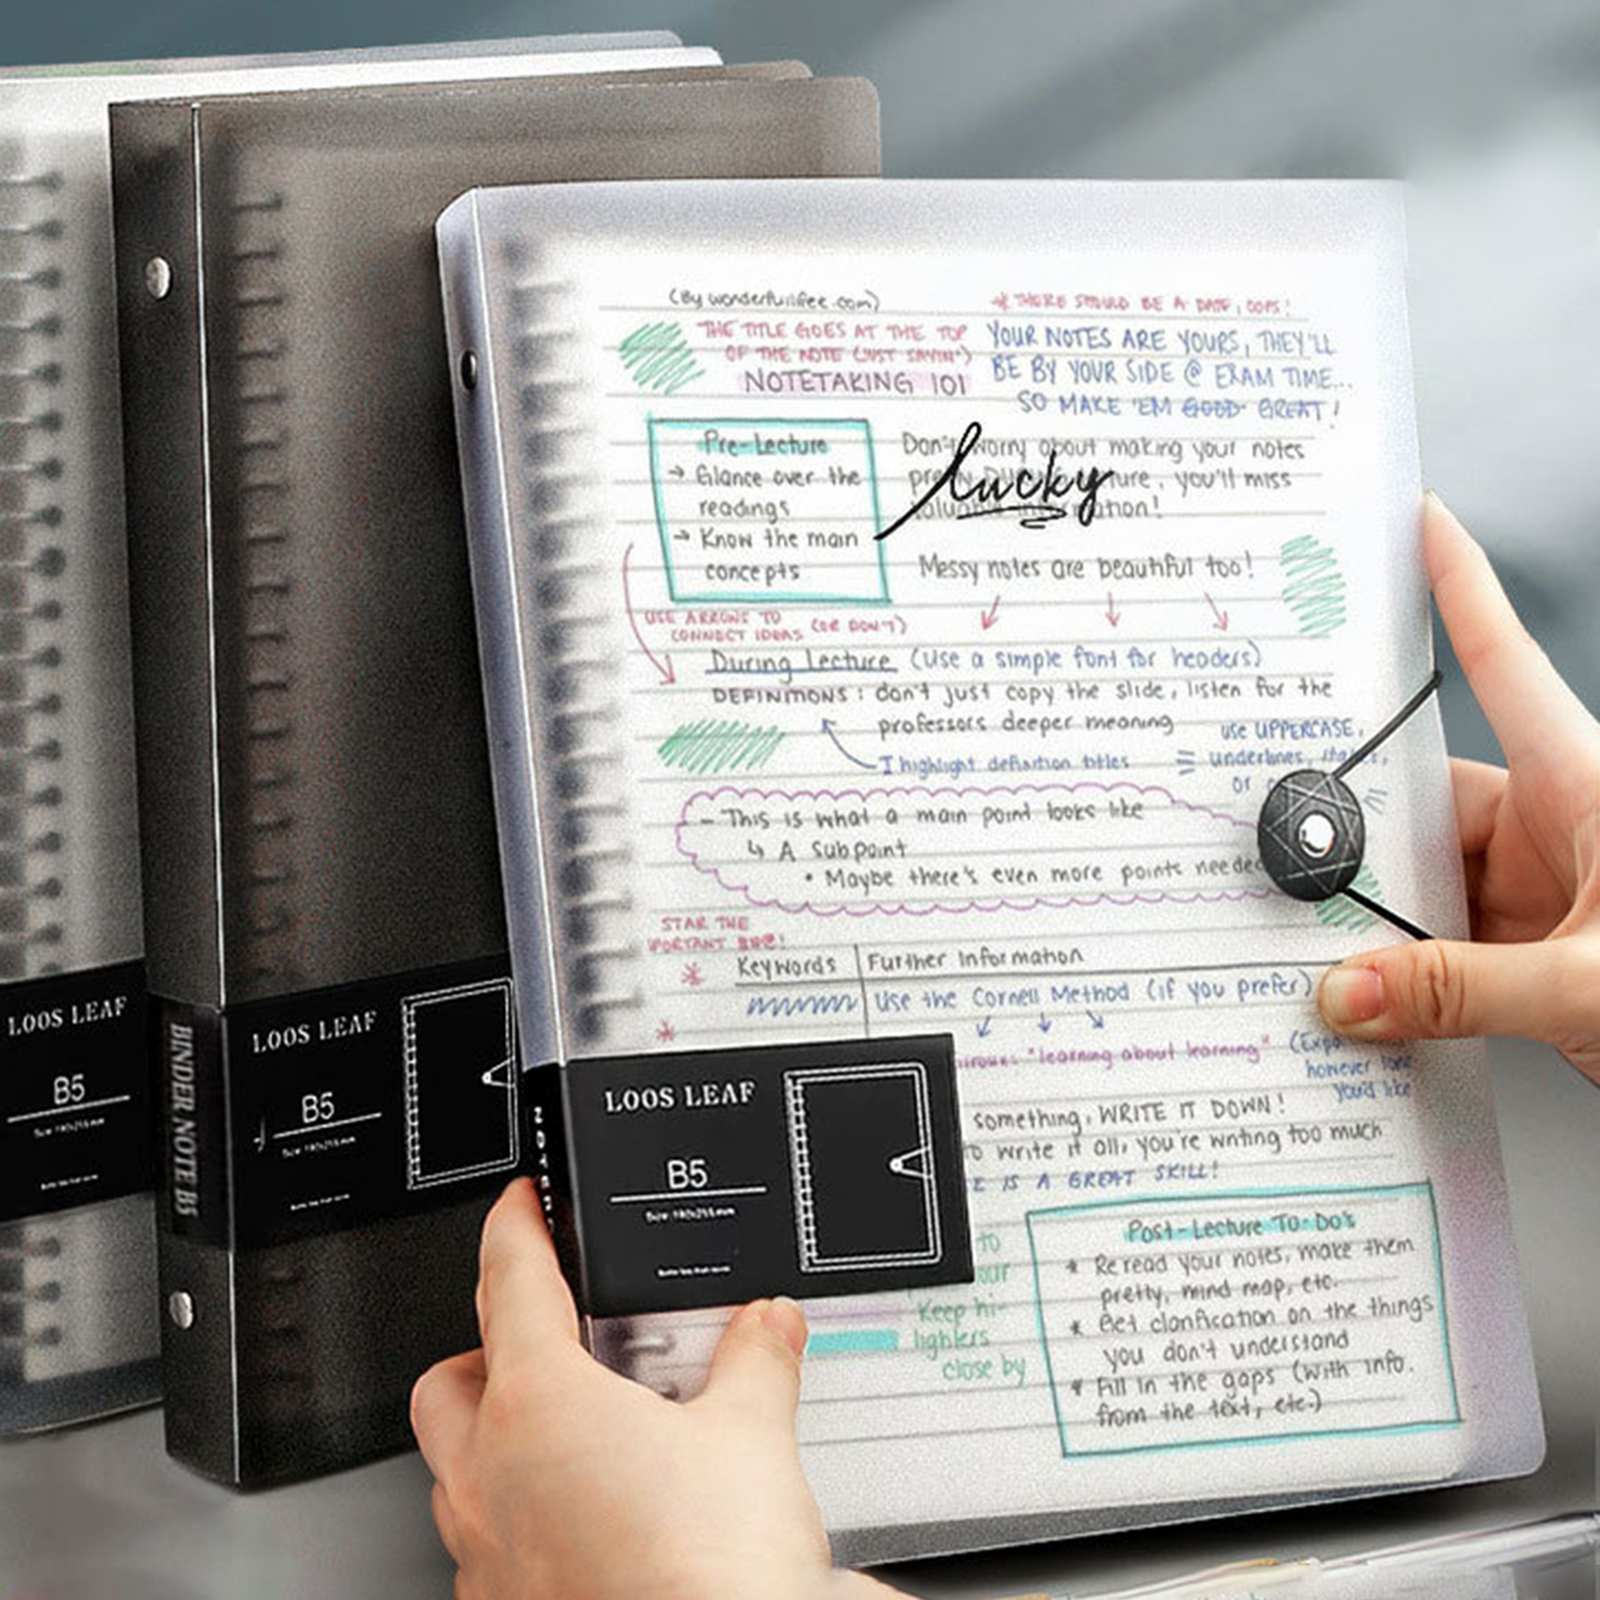 (By wonderfullifee.com)
* THERE SHOULD BE A DATE, OOPS!
THE TITLE GOES AT THE TOP
OF THE NOTE (JUST SAYIN')
NOTETAKING 101
YOUR NOTES ARE YOURS, THEY'LL
BE BY YOUR SIDE @ EXAM TIME...
SO MAKE 'EM GOOD GREAT!
Pre-Lecture
→ Glance over the
readings
→ Know the main
concepts
Don't worry about making your notes
you'll miss
lucky
Messy notes are beautiful too!
USE ARROWS TO
CONNECT IDEAS (OR DON'T)
During Lecture (use a simple font for headers)
DEFINITIONS: don't just copy the slide, listen for the
professors deeper meaning
I highlight definition titles
use UPPERCASE,
underlines,
or
- This is what a main point looks like
↳ A Subpoint
• Maybe there's even more points neede
STAR THE
PORTANT
Keywords Further Information
Use the Cornell Method (if you prefer)
"learning about learning"
however
you'd like
something, WRITE IT DOWN!
write it all, you're writing too much
IS A GREAT SKILL!
to
Keep hi-
lighters
close by
Post-Lecture To-Do's
* Reread your notes, make them
pretty, mind map, etc.
* Get clarification on the things
you don't understand
* Fill in the gaps (with info.
from the text, etc.)
LOOS LEAF
B5
LOOS LEAF
B5
BINDER NOTE B5
LOOS LEAF
B5